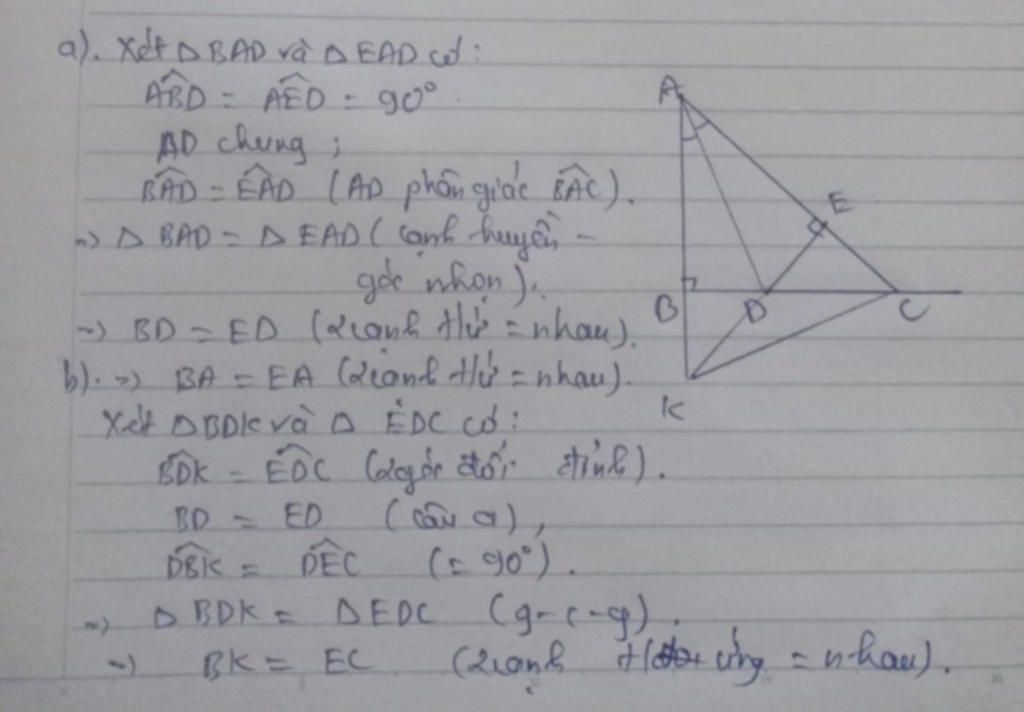 a). Xét △BAD và △EAD có:
ABD = AED = 90°
AD chung;
BAD = EAD (AD phân giác BAC).
=> △BAD = △EAD (cạnh huyền -
góc nhọn).
=> BD = ED (2 cạnh tứ = nhau).
b). => BA = EA (2 cạnh tứ = nhau).
Xét △BDK và △EDC có:
BDK = EDC (2 góc đối đỉnh).
BD = ED (câu a),
DBK = DEC (= 90°).
=> △BDK = △EDC (g-c-g).
=> BK = EC (2 cạnh ứng = nhau).
A
E
B
D
C
K